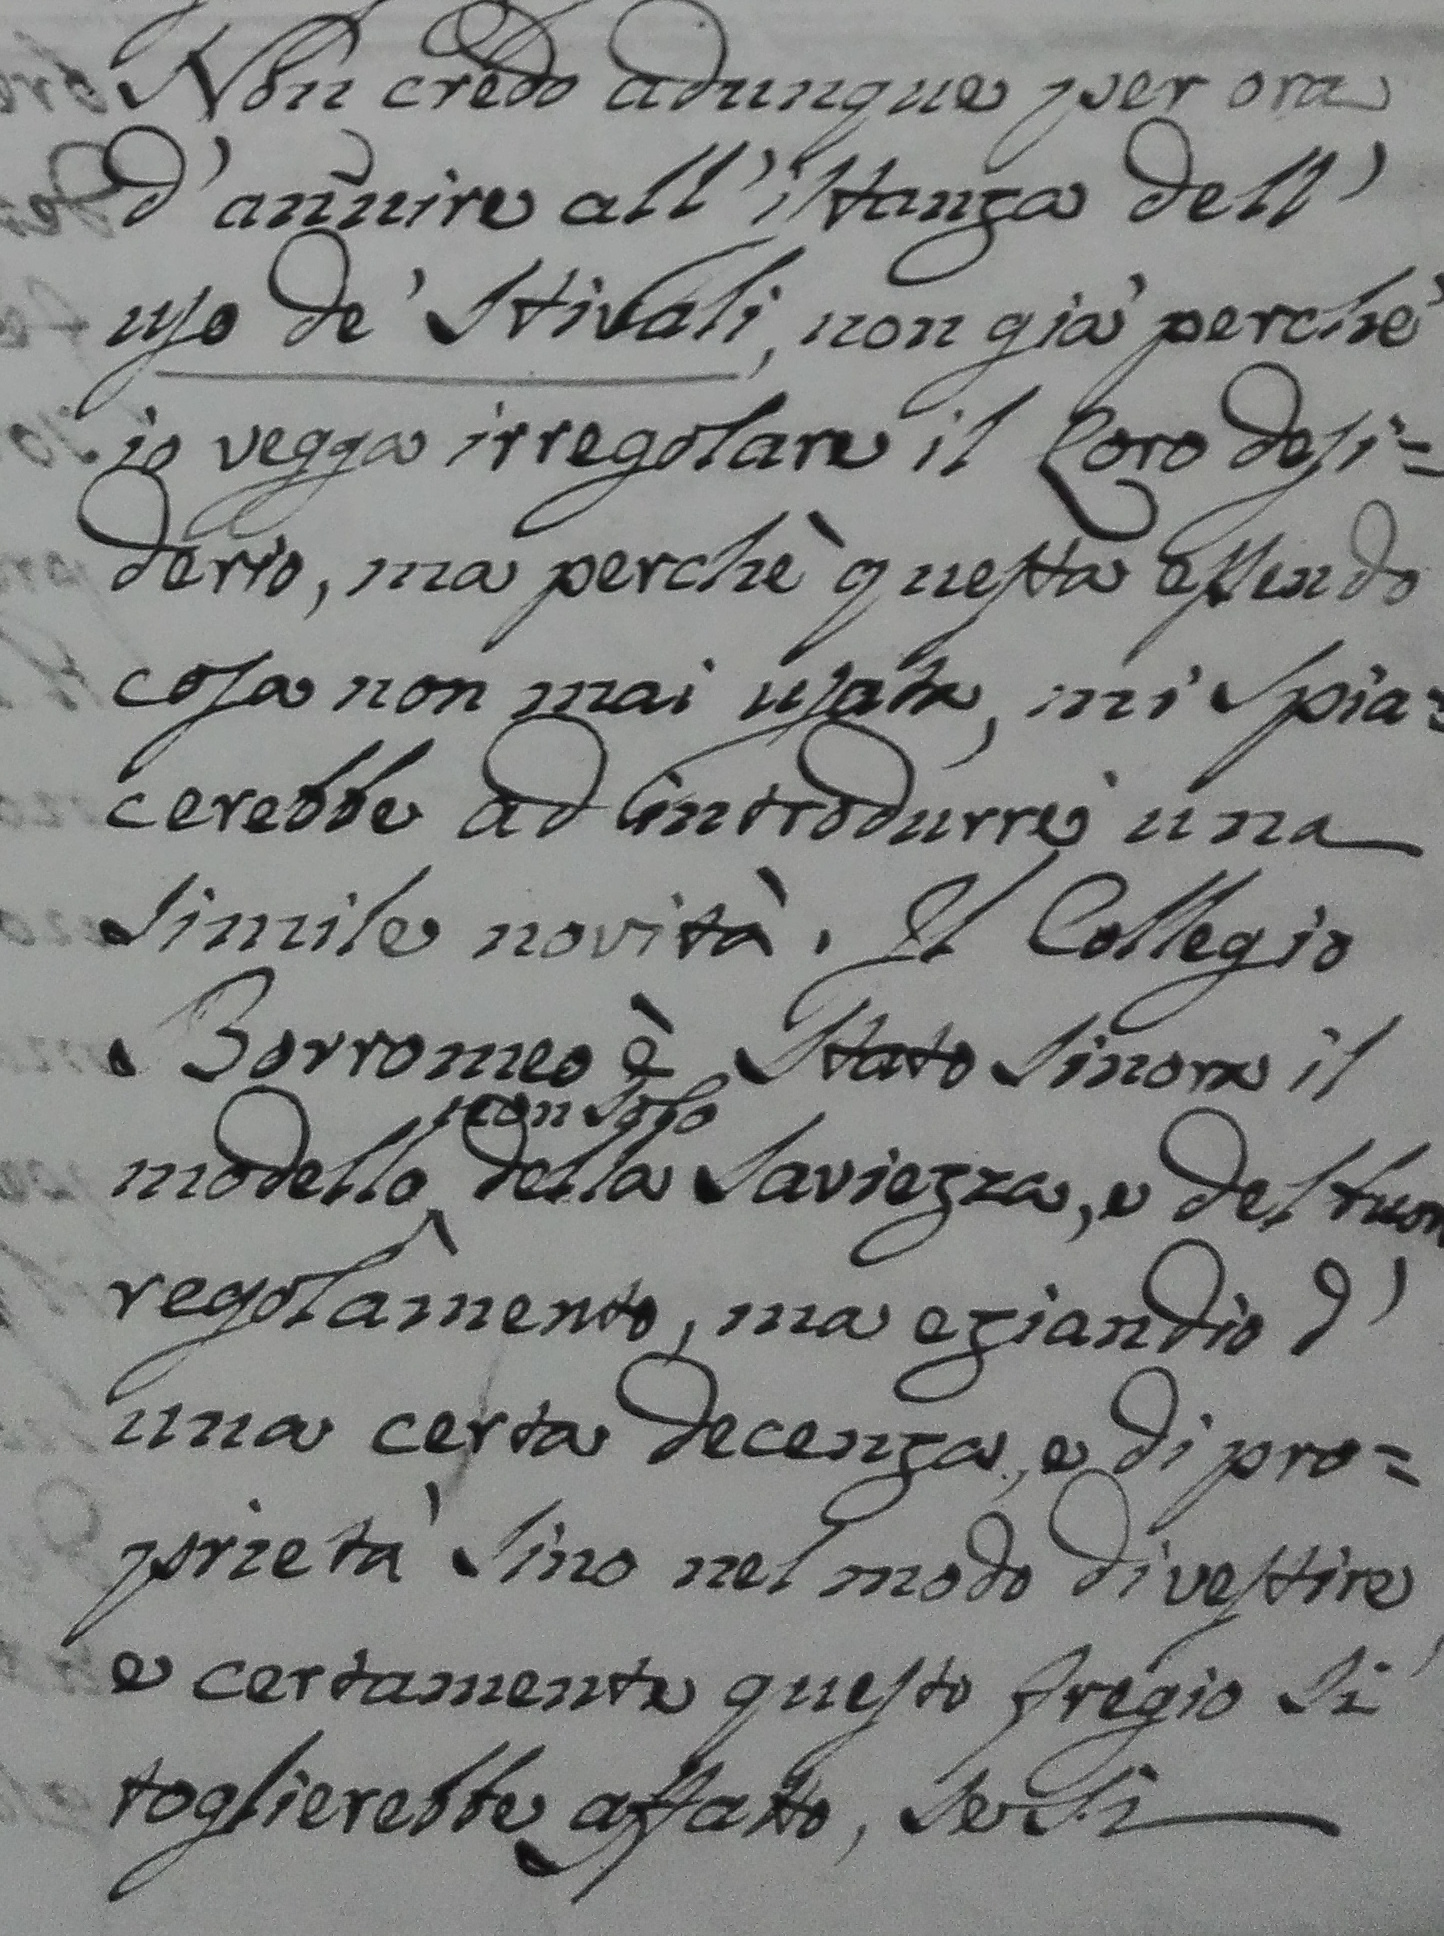 Non credo adunque per ora
d'annuire all'istanza dell'
uso de' Stivali, non già perchè
io vegga irregolare il Loro desi=
derio, ma perchè questa essendo
cosa non mai usata, mi spia=
cerebbe ad introdurre una
simile novità. Il Collegio
Borromeo è stato sinora il
non solo
modello della saviezza, e del buon
regolamento, ma eziandio d'
una certa decenza, e di pro=
prietà sino nel modo di vestire
e certamente questo fregio si
toglierebbe affatto, se si